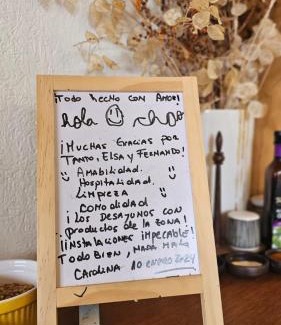 ¡Todo hecho con Amor!
hola chao
¡Muchas Gracias por
Tanto, Elsa y Fernando!
Amabilidad.
Hospitalidad.
Limpieza
Comodidad
¡Los Desayunos con
productos de la zona!
¡Instalaciones impecable!
Todo Bien, nada mal
Carolina 10 enero 2024